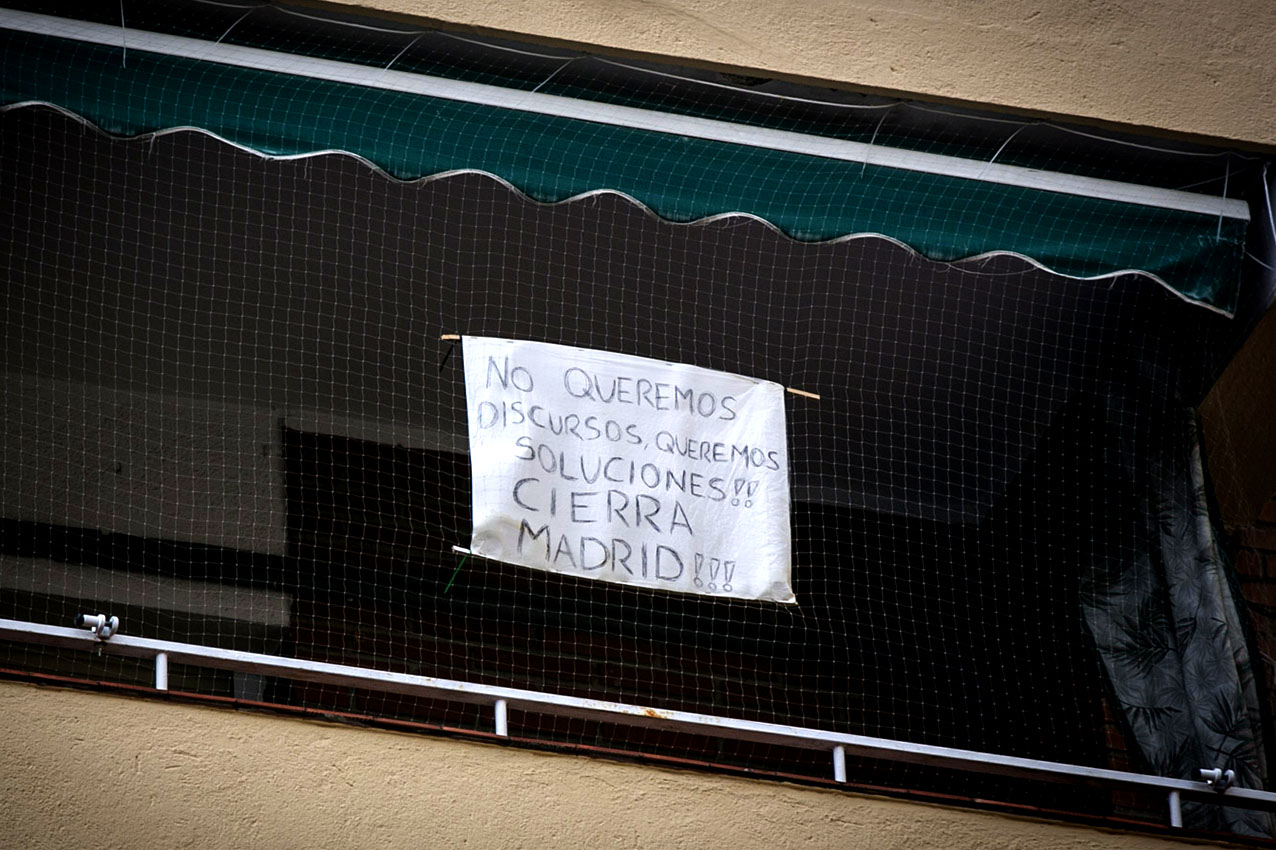 NO QUEREMOS
DISCURSOS, QUEREMOS
SOLUCIONES!!
CIERRA
MADRID!!!